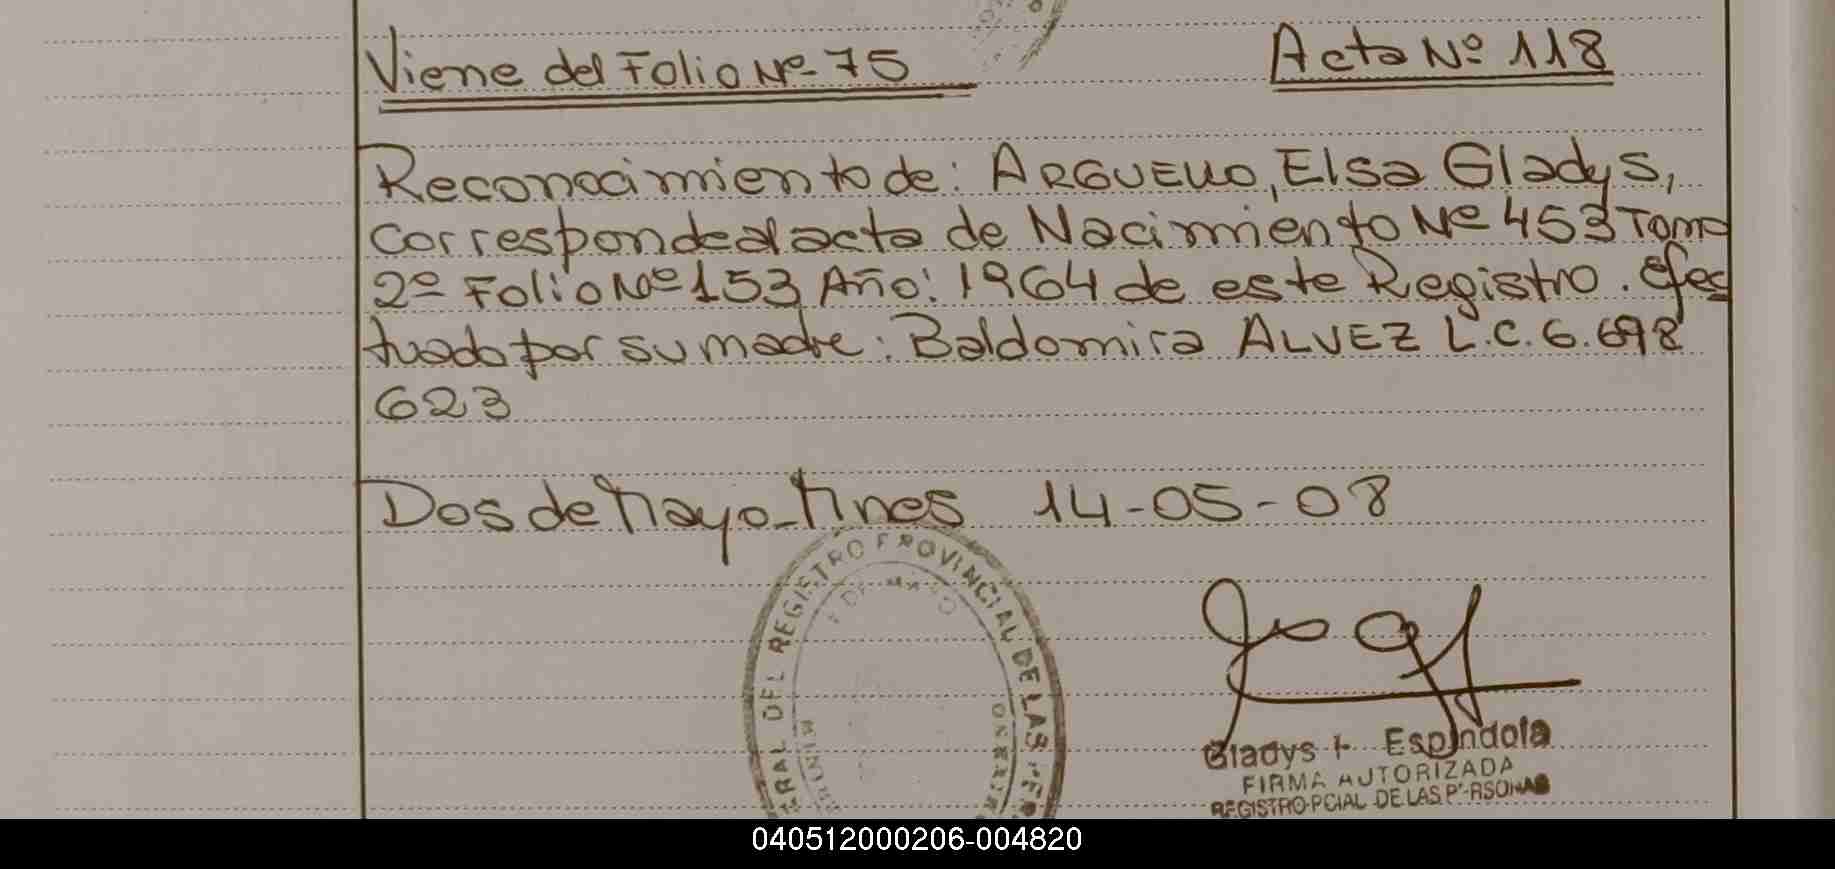 Viene del Folio Nº 75
Acta Nº 118
Reconocimiento de: ARGUELLO, Elsa Gladys,
corresponde al acta de Nacimiento Nº 453 Tomo
2º Folio Nº 153 Año: 1964 de este Registro. Efec
tuado por su madre: Baldomira ALVEZ L.C. 6.698
623
Dos de Mayo-Mnes 14-05-08
RAL DEL REGISTRO PROVINCIAL DE LAS PER
DE MAYO
Gladys I. Espindola
FIRMA AUTORIZADA
REGISTRO PCIAL DE LAS PERSONAS
040512000206-004820